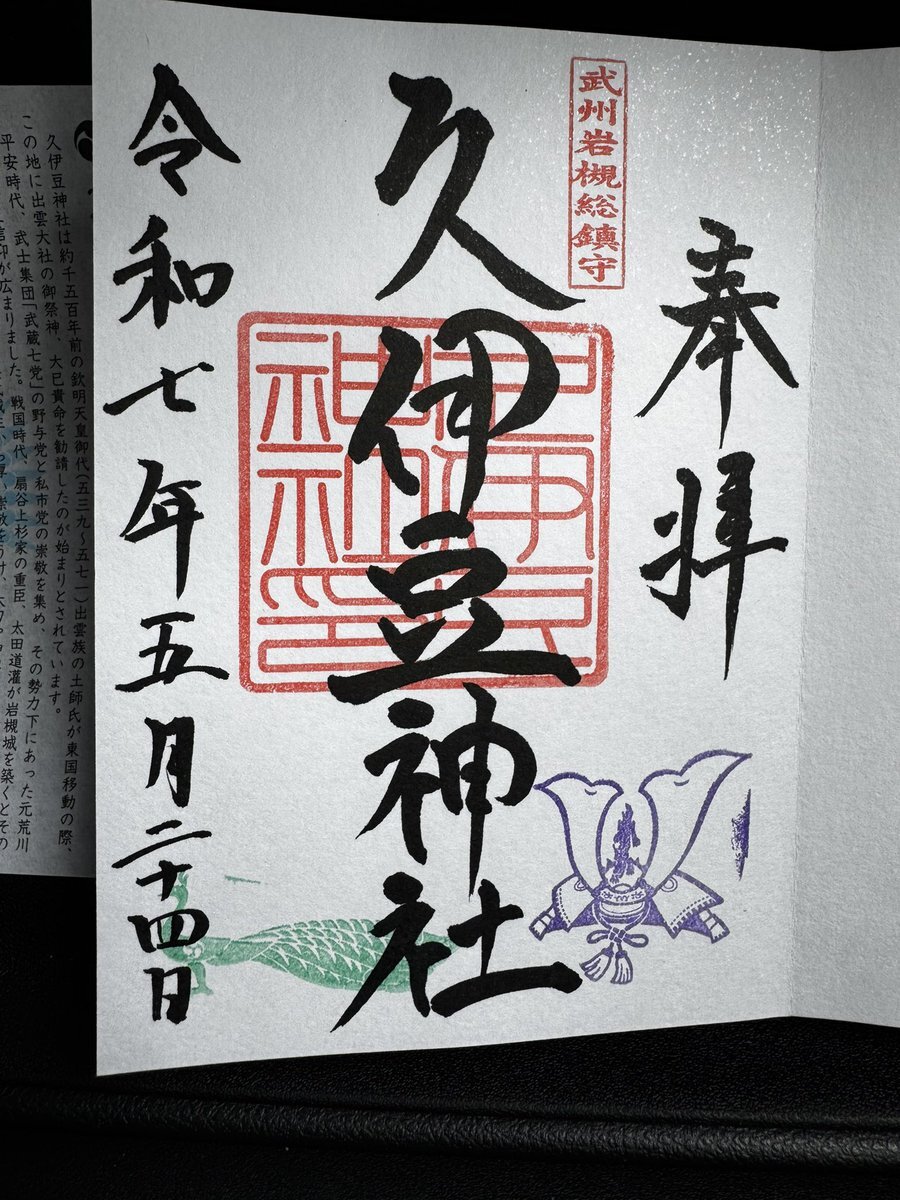 奉拝
武州岩槻総鎮守
久伊豆神社
令和七年五月二十四日
久伊豆神社は約千五百年前の欽明天皇御代（五三九～五七一）出雲族の土師氏が東国移動の際、
この地に出雲大社の御祭神、大己貴命を勧請したのが始まりとされています。
平安時代、武士集団「武蔵七党」の野与党と私市党の崇敬を集め、その勢力下にあった元荒川
信仰が広まりました。戦国時代、扇谷上杉家の重臣、太田道灌が岩槻城を築くとその